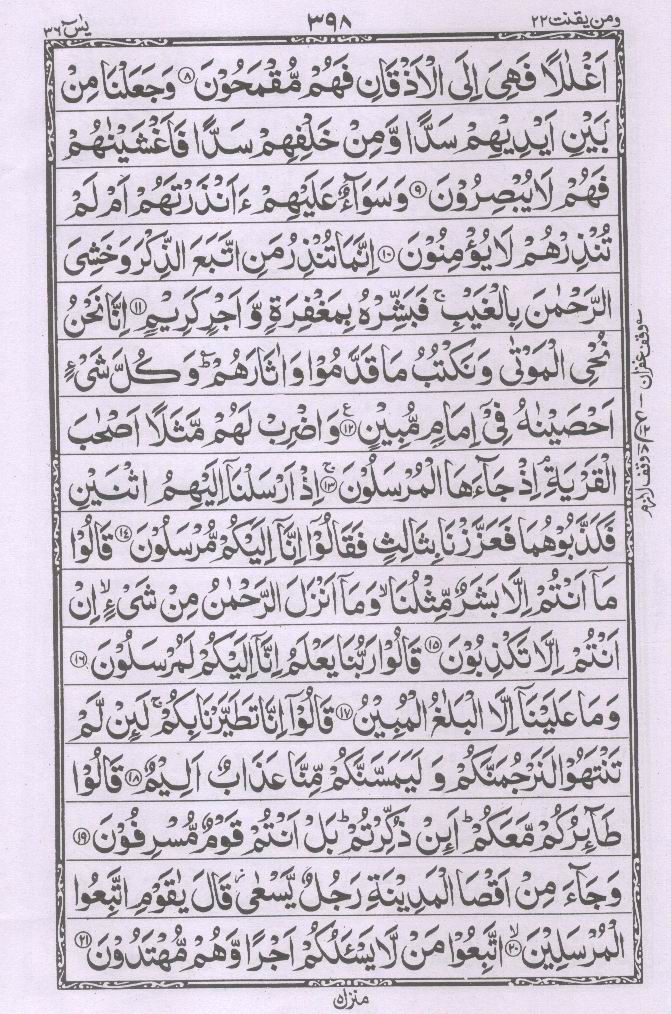 ومن يقنت ٢٢ ٣٩٨ يٰسٓ ٣٦
اَغْلٰلًا فَهِىَ اِلَى الْاَذْقَانِ فَهُمْ مُّقْمَحُوْنَ ﴿٨﴾ وَجَعَلْنَا مِنْۢ
بَيْنِ اَيْدِيْهِمْ سَدًّا وَّمِنْ خَلْفِهِمْ سَدًّا فَاَغْشَيْنٰهُمْ
فَهُمْ لَا يُبْصِرُوْنَ ﴿٩﴾ وَسَوَآءٌ عَلَيْهِمْ ءَاَنْذَرْتَهُمْ اَمْ لَمْ
تُنْذِرْهُمْ لَا يُؤْمِنُوْنَ ﴿١٠﴾ اِنَّمَا تُنْذِرُ مَنِ اتَّبَعَ الذِّكْرَ وَخَشِىَ
الرَّحْمٰنَ بِالْغَيْبِ ۚ فَبَشِّرْهُ بِمَغْفِرَةٍ وَّاَجْرٍ كَرِيْمٍ ﴿١١﴾ اِنَّا نَحْنُ
نُحْىِ الْمَوْتٰى وَنَكْتُبُ مَا قَدَّمُوْا وَاٰثَارَهُمْ ۭ وَكُلَّ شَىْءٍ
اَحْصَيْنٰهُ فِىْٓ اِمَامٍ مُّبِيْنٍ ﴿١٢﴾ ع وَاضْرِبْ لَهُمْ مَّثَلًا اَصْحٰبَ
الْقَرْيَةِ ۘ اِذْ جَآءَهَا الْمُرْسَلُوْنَ ﴿١٣﴾ ۚ اِذْ اَرْسَلْنَآ اِلَيْهِمُ اثْنَيْنِ
فَكَذَّبُوْهُمَا فَعَزَّزْنَا بِثَالِثٍ فَقَالُوْٓا اِنَّآ اِلَيْكُمْ مُّرْسَلُوْنَ ﴿١٤﴾ قَالُوْا
مَآ اَنْتُمْ اِلَّا بَشَرٌ مِّثْلُنَا ۙ وَمَآ اَنْزَلَ الرَّحْمٰنُ مِنْ شَىْءٍ ۙ اِنْ
اَنْتُمْ اِلَّا تَكْذِبُوْنَ ﴿١٥﴾ قَالُوْا رَبُّنَا يَعْلَمُ اِنَّآ اِلَيْكُمْ لَمُرْسَلُوْنَ ﴿١٦﴾
وَمَا عَلَيْنَآ اِلَّا الْبَلٰغُ الْمُبِيْنُ ﴿١٧﴾ قَالُوْٓا اِنَّا تَطَيَّرْنَا بِكُمْ ۚ لَئِنْ لَّمْ
تَنْتَهُوْا لَنَرْجُمَنَّكُمْ وَلَيَمَسَّنَّكُمْ مِّنَّا عَذَابٌ اَلِيْمٌ ﴿١٨﴾ قَالُوْا
طَآئِرُكُمْ مَّعَكُمْ ۭ اَئِنْ ذُكِّرْتُمْ ۭ بَلْ اَنْتُمْ قَوْمٌ مُّسْرِفُوْنَ ﴿١٩﴾
وَجَآءَ مِنْ اَقْصَا الْمَدِيْنَةِ رَجُلٌ يَّسْعٰى ۡ قَالَ يٰقَوْمِ اتَّبِعُوا
الْمُرْسَلِيْنَ ﴿٢٠﴾ ۙ اتَّبِعُوْا مَنْ لَّا يَسْـَٔلُكُمْ اَجْرًا وَّهُمْ مُّهْتَدُوْنَ ﴿٢١﴾
منزل ٥